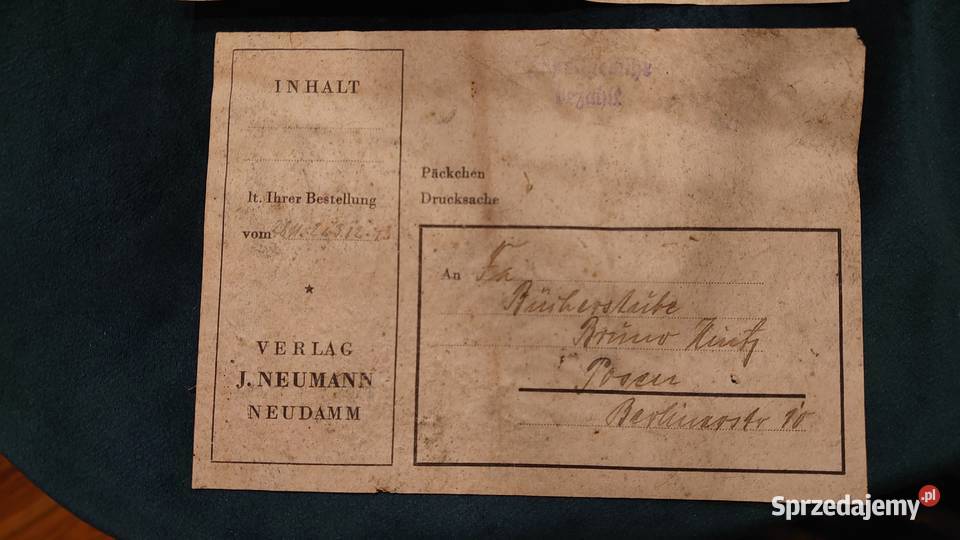 INHALT
lt. Ihrer Bestellung
vom
★
VERLAG
J. NEUMANN
NEUDAMM
bezahlt
Päckchen
Drucksache
An Fa
Bücherstube
Bruno Hintz
Posen
Berlinerstr 10
Sprzedajemy.pl